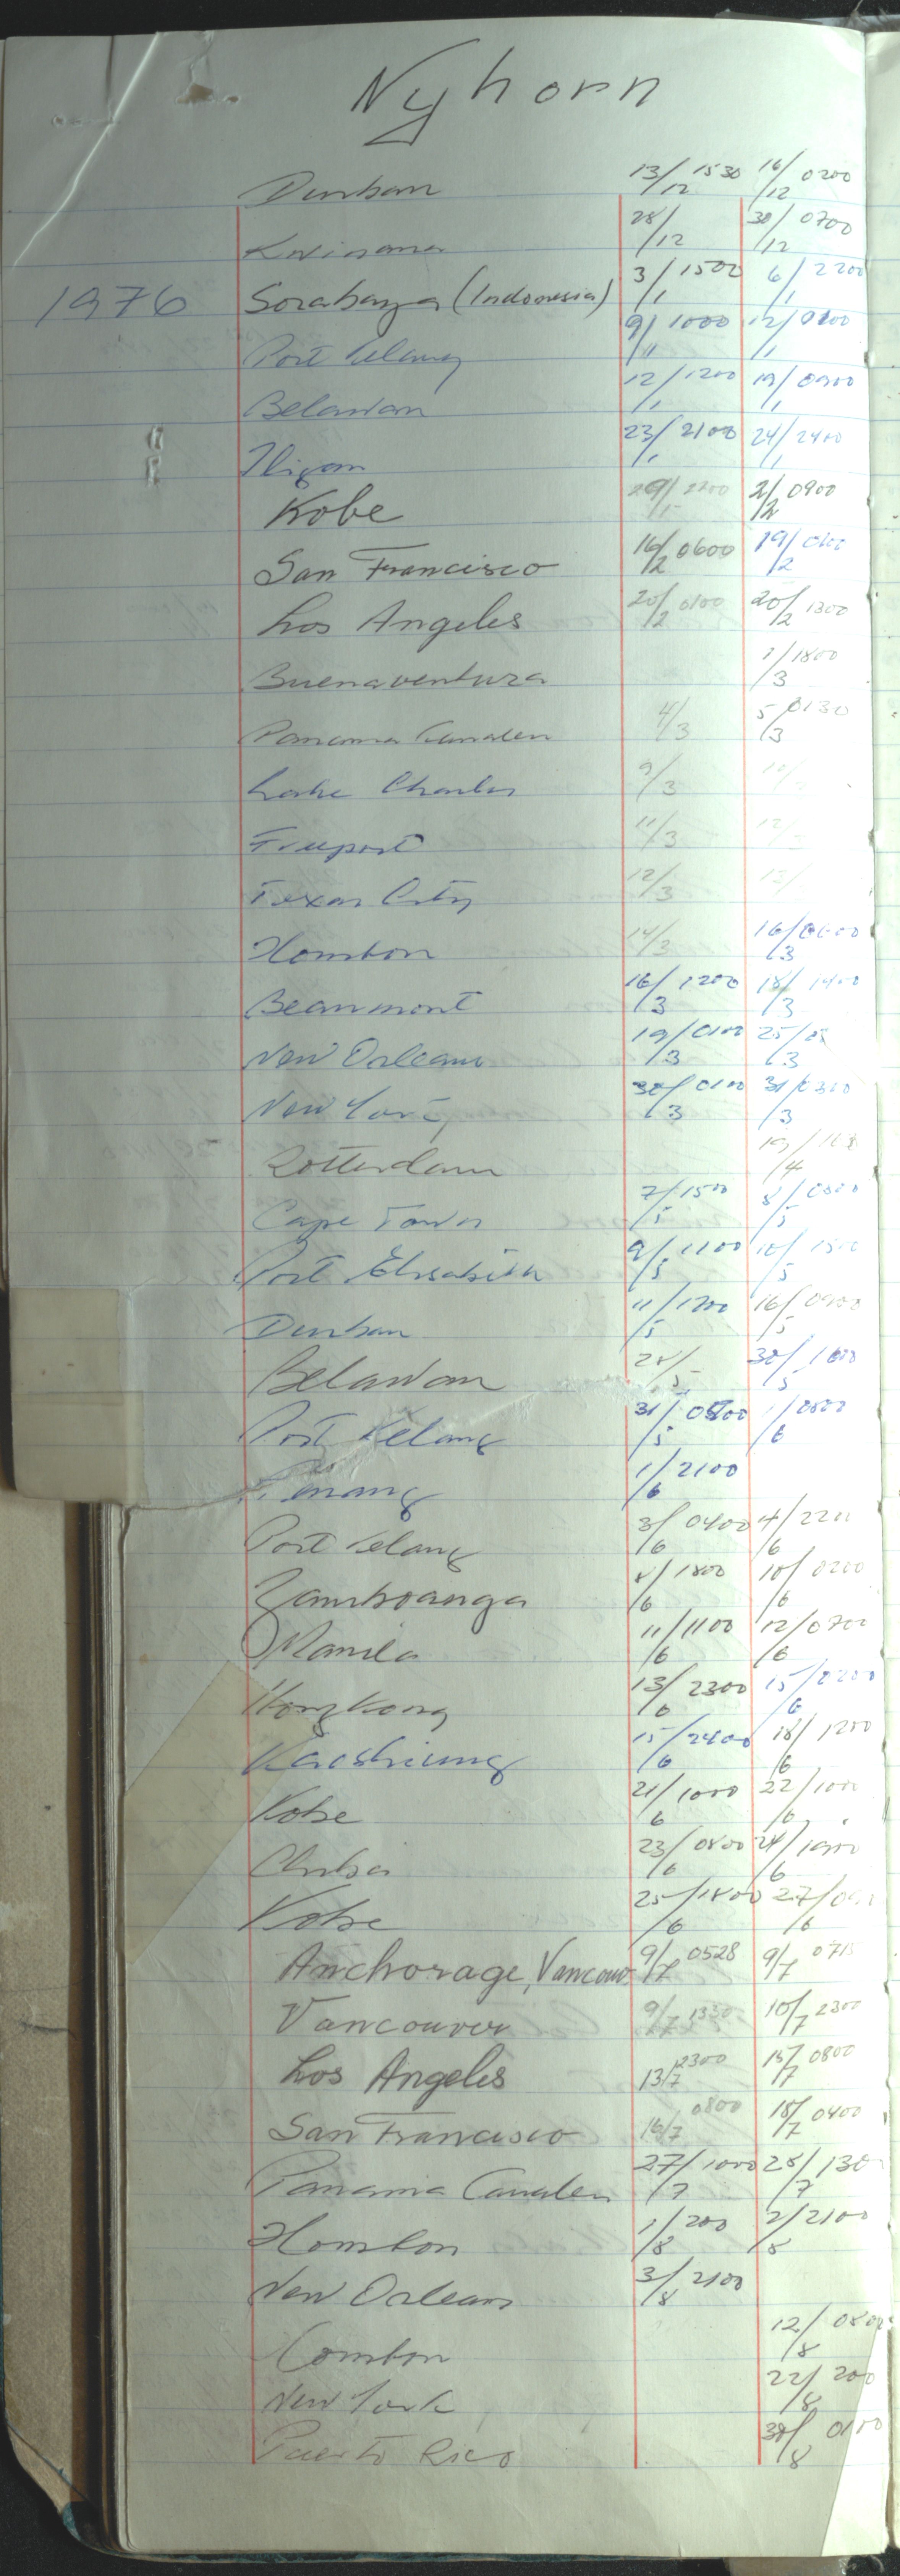 Nyhorn
Durban 13/12 1530 16/12 0200
Kwinana 28/12 30/12 0700
1976 Sorabaya (Indonesia) 3/1 1500 6/1 2200
Port Kelang 9/1 1000 12/1
Belawan 12/1 1200 19/1 0900
Iligan 23/1 2100 24/1 2400
Kobe 29/1 2200 2/2 0900
San Francisco 16/2 0600 19/2
Los Angeles 20/2 0100 20/2 1300
Buenaventura 1/3 1800
Panama Canalen 4/3 5/3 0130
Lake Charles 9/3 10/
Freeport 11/3 12/
Texas City 12/3 13/
Houston 14/3 16/3
Beaumont 16/3 1200 18/3 1400
New Orleans 19/3 0100 25/3
New York 30/3 0100 31/3 0300
Rotterdam 19/4
Cape Town 7/5 1500 8/5
Port Elisabeth 9/5 1100 10/5 1500
Durban 11/5 1200 16/5 0900
Belawan 28/5 30/5 1600
Port Kelang 31/5 0800 1/6
Penang 1/6 2100
Port Kelang 3/6 0400 4/6
Zamboanga 8/6 1800 10/6 0200
Manila 11/6 1100 12/6 0700
Hongkong 13/6 2300 15/6
Kaoshiung 15/6 2400 18/6 1200
Kobe 21/6 1000 22/6 1000
Chiba 23/6 0800 24/6
Kobe 25/6 1800 27/6
Anchorage, Vancouv 9/7 0528 9/7 0715
Vancouver 9/7 1330 10/7 2300
Los Angeles 13/7 2300 15/7 0800
San Francisco 16/7 0800 18/7 0400
Panama Canalen 27/7 1000 28/7 130
Houston 1/8 200 2/8 2100
New Orleans 3/8 2100
12/8
New York 22/8 200
Puerto Rico 30/8